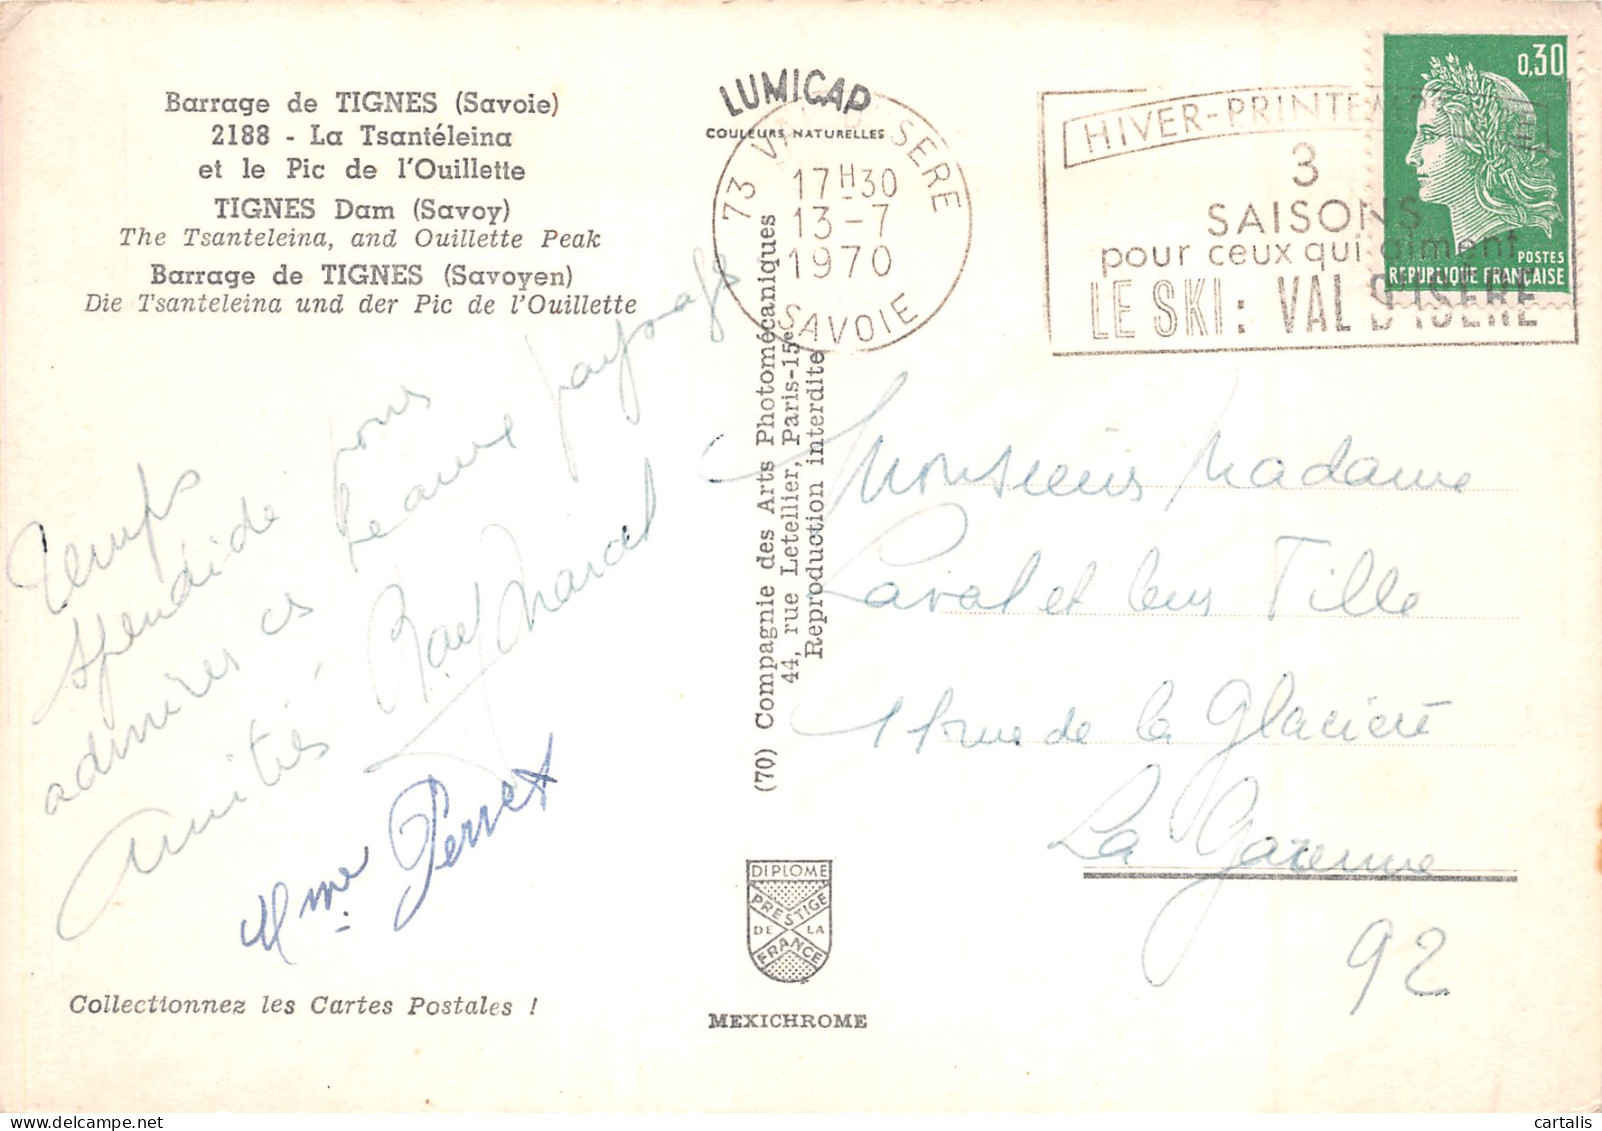 Barrage de TIGNES (Savoie)
2188 - La Tsantéleina
et le Pic de l'Ouillette
TIGNES Dam (Savoy)
The Tsanteleina, and Ouillette Peak
Barrage de TIGNES (Savoyen)
Die Tsanteleina und der Pic de l'Ouillette
Temps
splendide pour
admirer ces beaux paysages
Amitiés Ray Marcel
Mme Perret
Collectionnez les Cartes Postales !
LUMICAP
COULEURS NATURELLES
73 VAL D'ISERE
17H30
13-7
1970
SAVOIE
(70) Compagnie des Arts Photomécaniques
44, rue Letellier, Paris-15e
Reproduction interdite
DIPLOME
PRESTIGE
DE LA
FRANCE
MEXICHROME
HIVER-PRINTEMPS
3
SAISONS
pour ceux qui aiment
LE SKI: VAL D'ISERE
0,30
POSTES
REPUBLIQUE FRANÇAISE
Monsieur Madame
Laval et leur Fille
11 rue de la Glacière
La Garenne
92
cartalis